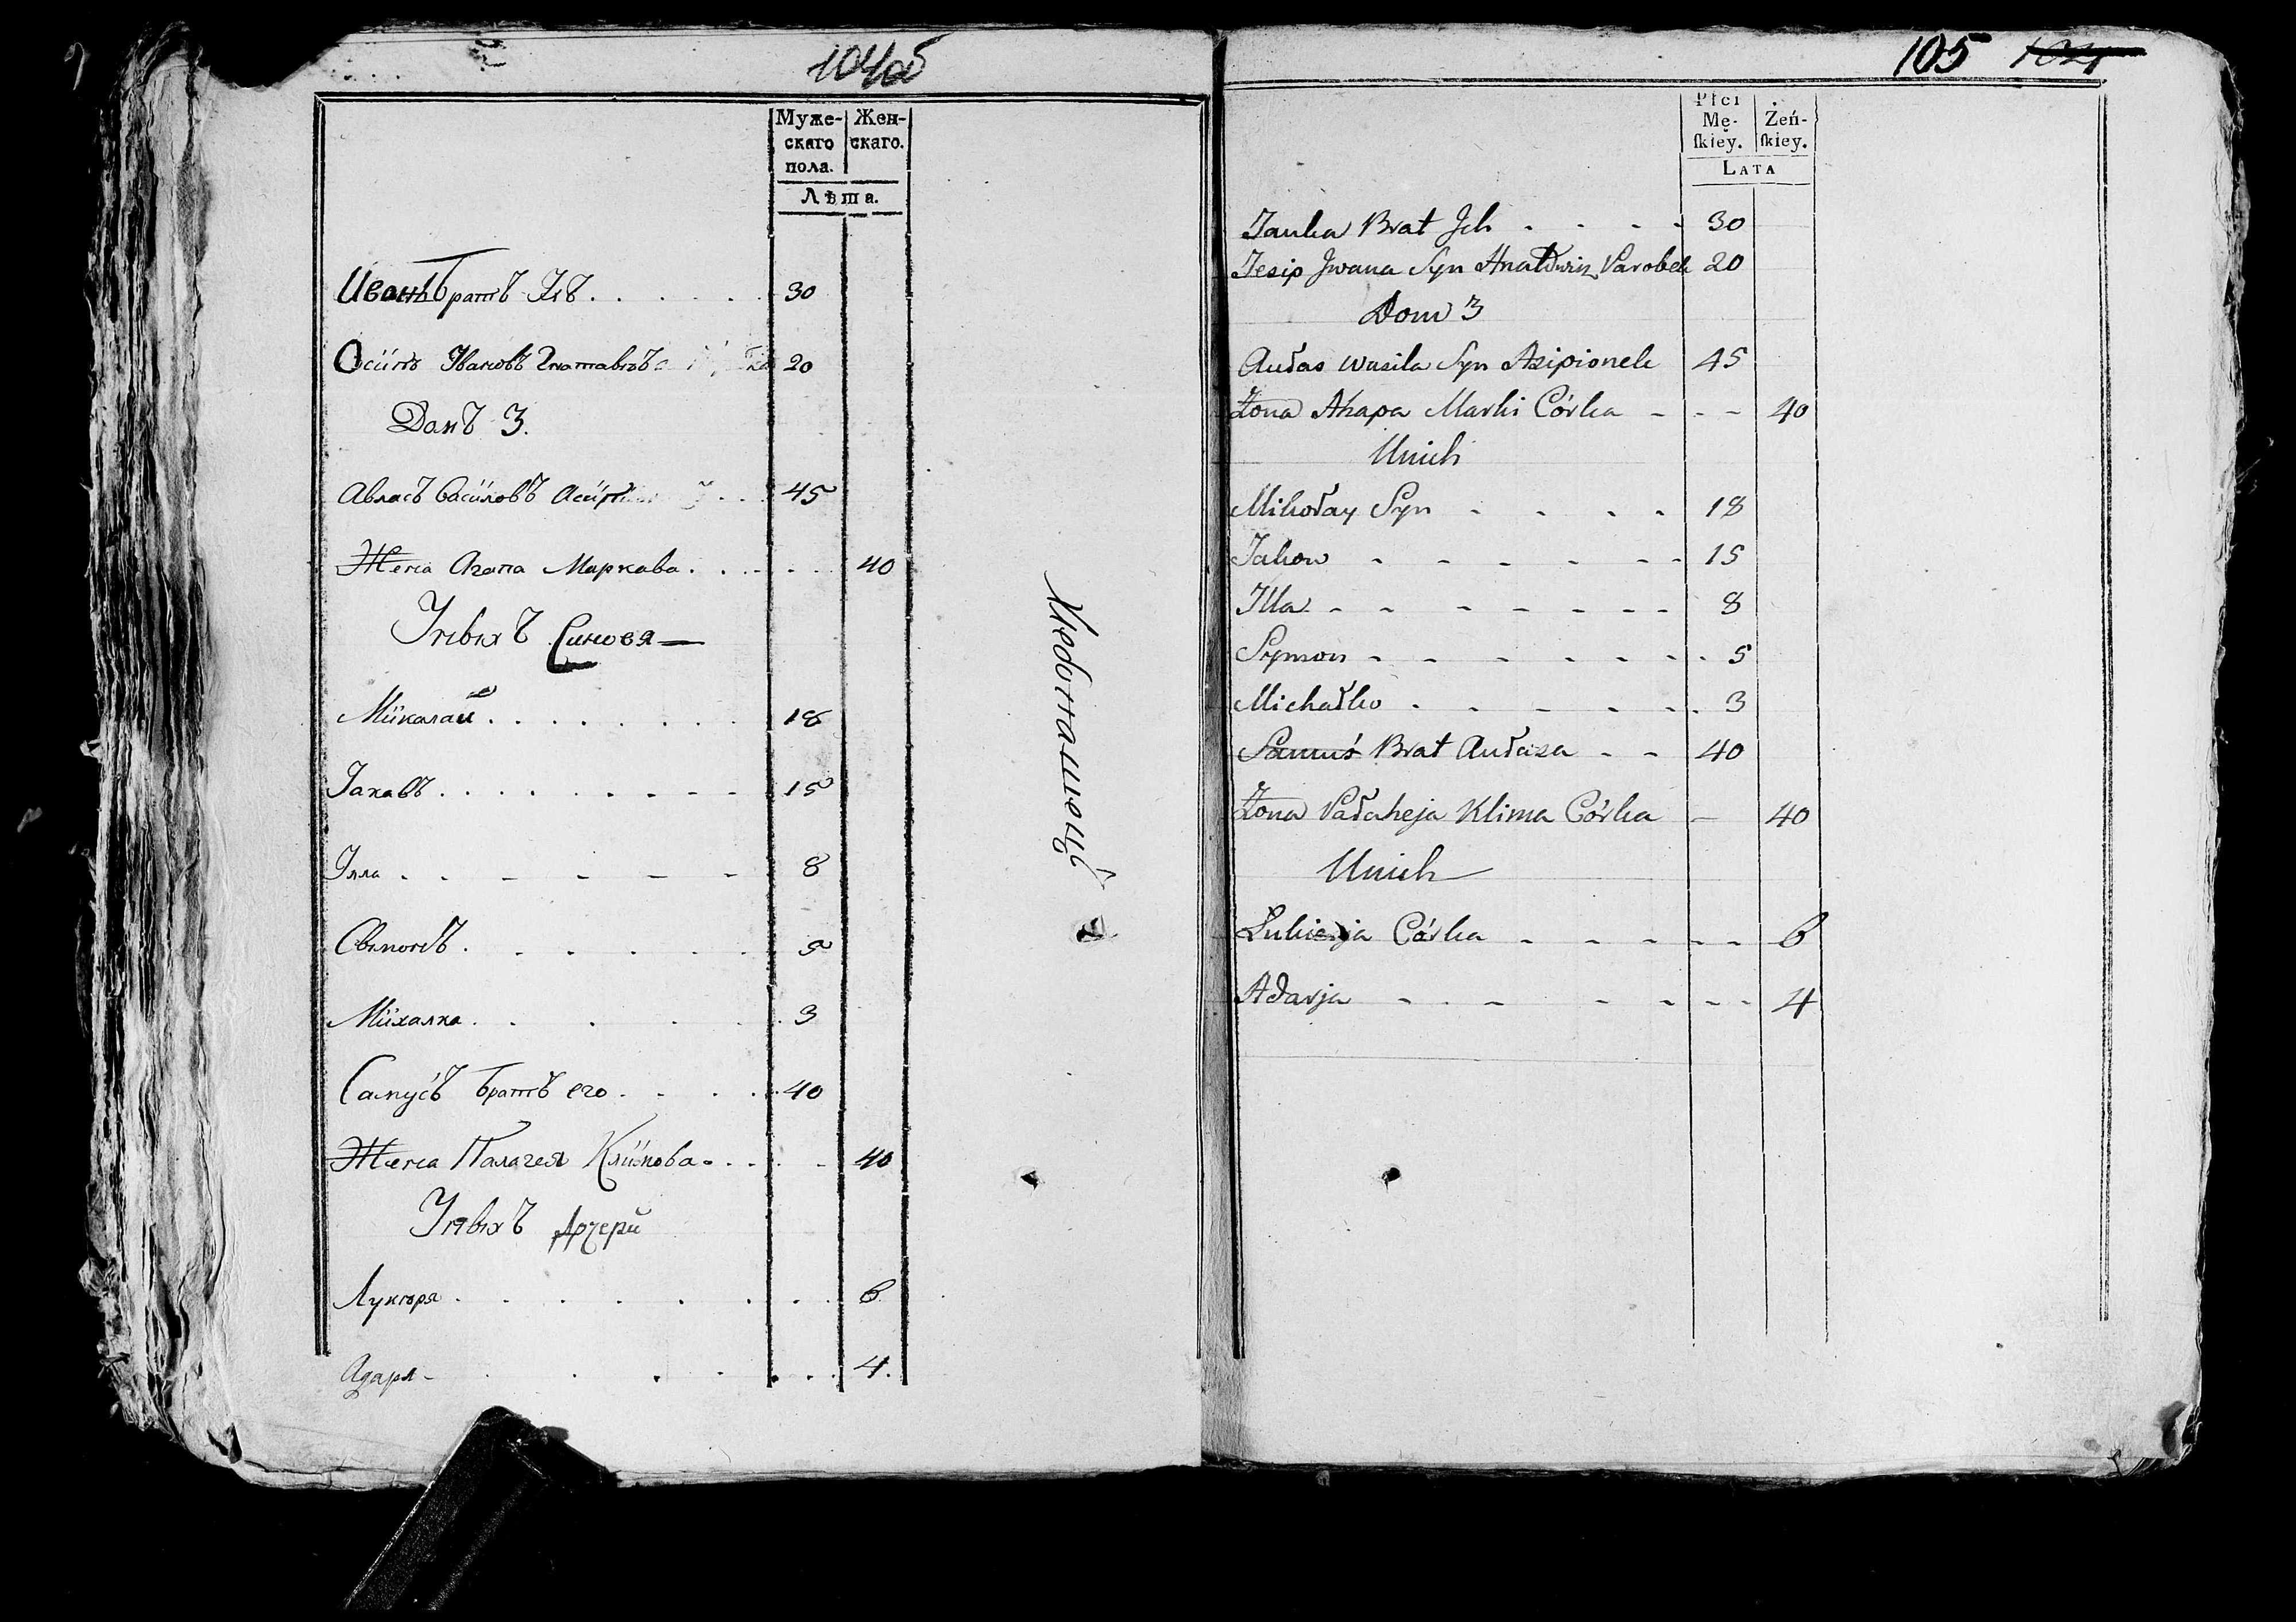 104об
Муже-
скаго
пола.
Жен-
скаго.
Лѣта.
Иванъ братъ Ихъ 30
Осипъ Ивановъ 20
Домъ 3.
Авласъ Василовъ 45
Жена Агапа Маркава 40
Унихъ Синовя
Миколай 18
Іаковъ 15
Илла 8
Сымонъ 5
Михалка 3
Самусь братъ его 40
Жена Палагея Климова 40
Унихъ Дочери
Лукъря 6
Адаря 4.
105 104
Płci
Mę-
ſkiey.
Żeń-
ſkiey.
LATA
Janka Brat Jch 30
Jesip Jwana Syn Parobek 20
Dom 3
Aułas Wasila Syn Asipionek 45
Żona Ahapa Marki Córka 40
Unich
Mikołay Syn 18
Jakow 15
Illa 8
Symon 5
Michałko 3
Samuś Brat Aułasa 40
Żona Pałaheja Klima Córka 40
Unich
Łukierja Córka 6
Adarja 4